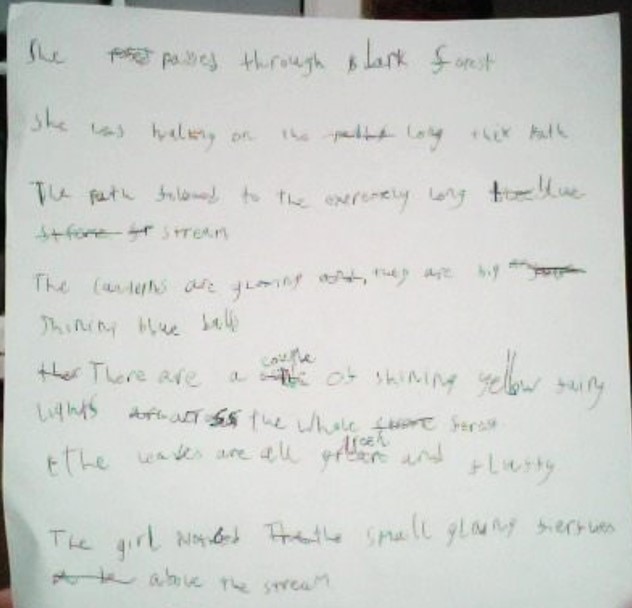 She passes through dark forest
She was walking on the long thick path
The path folowed to the exeremely long blue
stream
The lanterns are glowing they are big
Shining blue balls
There are a couple of shining yellow fairy
lights across the whole forest
The leaves are all green and fluffy
The girl the small glowing
above the stream